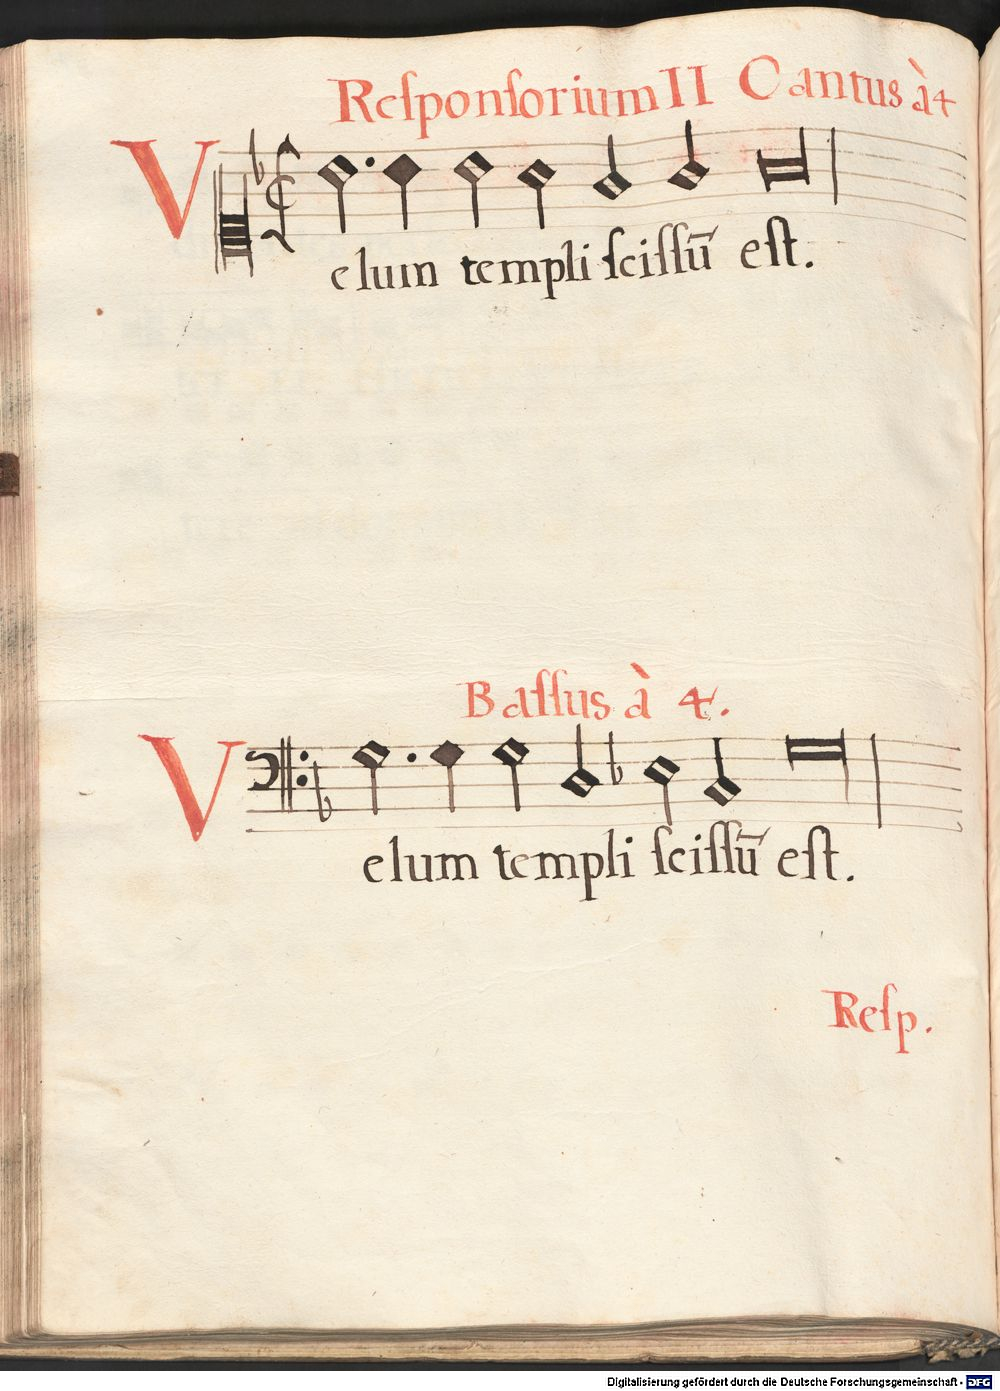 Reſponſorium II Cantus à 4
Velum templi ſciſſū eſt.
Baſſus à 4.
Velum templi ſciſſū eſt.
Reſp.
Digitalisierung gefördert durch die Deutsche Forschungsgemeinschaft - DFG